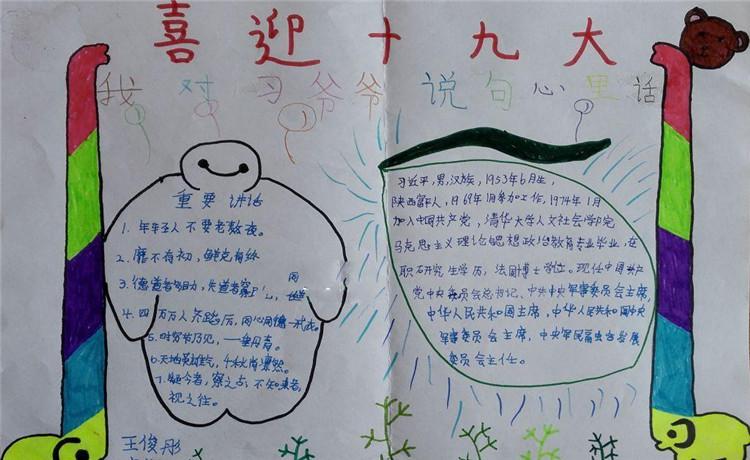 喜迎十九大
我对习爷爷说句心里话
重要讲话
1. 年轻人不要老熬夜。
2. 靡不有初，鲜克有终
3. 德道者多助，失道者寡
4. 四万万人齐蹈厉，同心同德一戎衣。
5. 时穷节乃见，一垂丹青。
6. 天地英雄气，千秋尚凛然。
7. 疑今者，察之古，不知来者，
视之往。
习近平，男，汉族，1953年6月生，
陕西富平人，1969年1月参加工作，1974年1月
加入中国共产党，清华大学人文社会学院
马克思主义理论与思想政治教育专业毕业，在
职研究生学历，法学博士学位。现任中国共产
党中央委员会总书记、中共中央军事委员会主席，
中华人民共和国主席，中华人民共和国中央
军事委员会主席，中央军民融合发展
委员会主任。
王俊彤